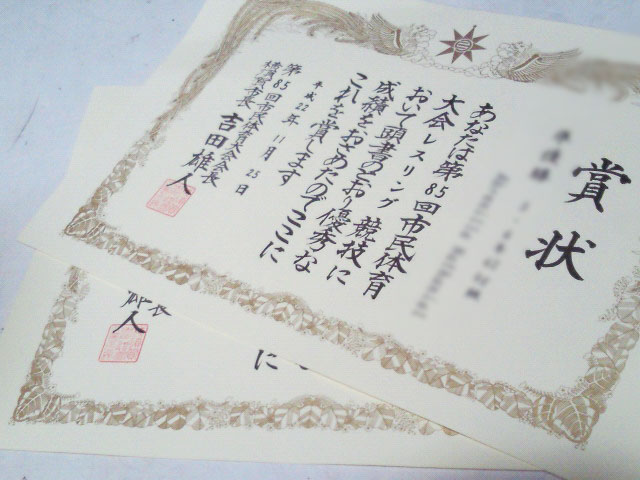 賞状
あなたは第85回市民体育
大会レスリング競技に
おいて頭書のとおり優秀な
成績をおさめたのでここに
これを賞します
平成22年11月23日
第85回市民体育大会会長
横須賀市長 吉田雄人
に
人